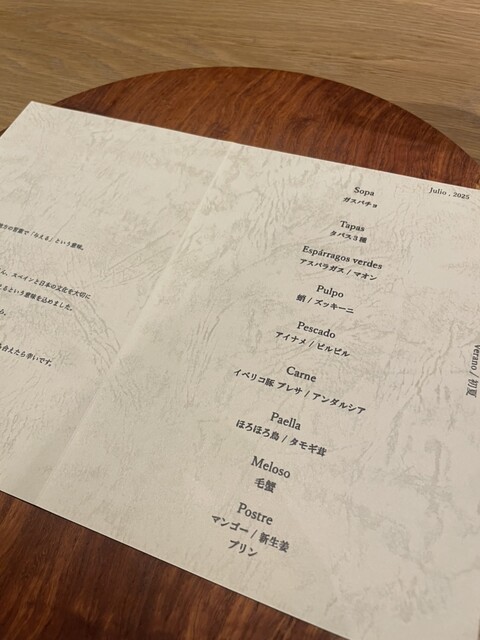 語で「与える」という意味。
スペインと日本の文化を大切に
るという意味を込めました。
ら、
合えたら幸いです。
Julio . 2025
Sopa
ガスパチョ
Tapas
タパス3種
Espárragos verdes
アスパラガス / マオン
Pulpo
蛸 / ズッキーニ
Pescado
アイナメ / ピルピル
Carne
イベリコ豚 プレサ / アンダルシア
Paella
ほろほろ鳥 / タモギ茸
Meloso
毛蟹
Postre
マンゴー / 新生姜
プリン
verano / 初夏